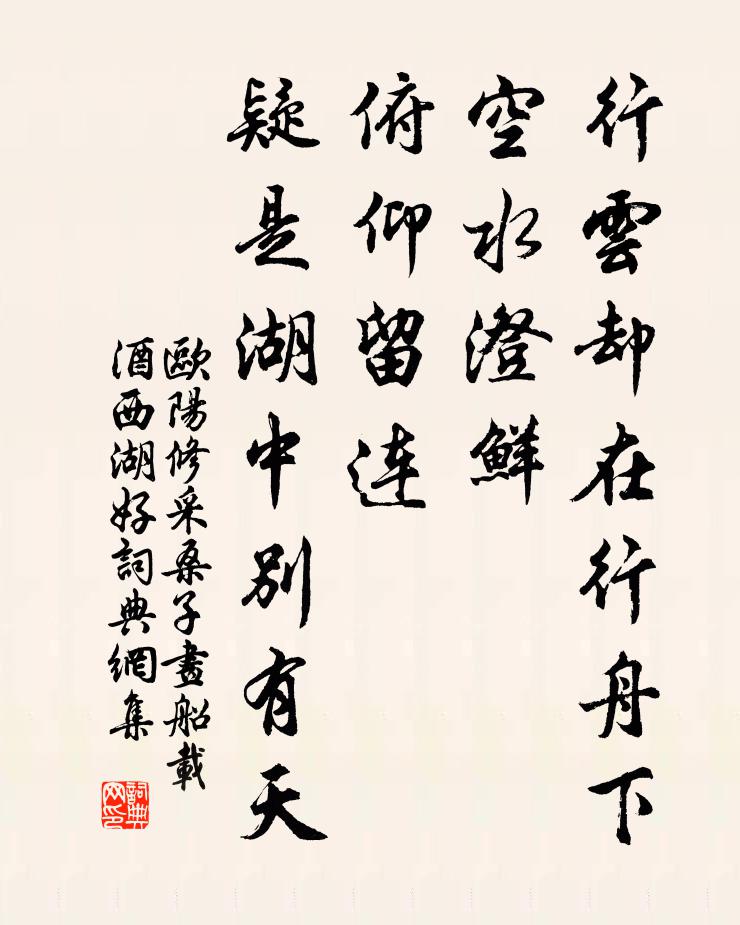 行雲却在行舟下
空水澄鮮
俯仰留连
疑是湖中別有天
歐陽修采桑子畫船載
酒西湖好詞典網集
詞典
网印